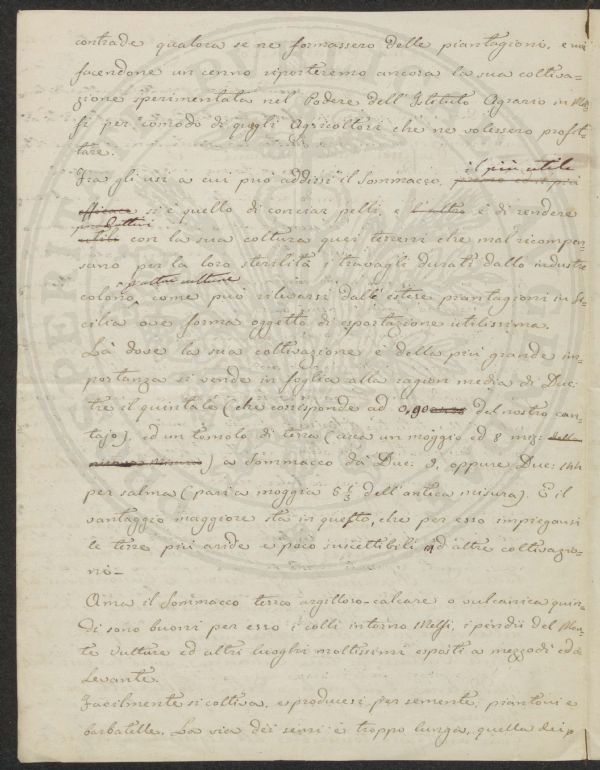 contrade qualora se ne formassero delle piantagioni, e noi
facendone un cenno riporteremo ancora la sua coltiva-
zione sperimentata nel Podere dell'Istituto Agrario in Mel-
fi per comodo di quegli Agricoltori che ne volessero profit-
tare.
il più utile
Fra gli usi a cui può addirsi il Sommacco,
efficace si è quello di conciar pelli, e l'altro è di rendere
produttivi
utile con la sua coltura quei terreni che mal ricompen-
sano per la loro sterilità i travagli durati dallo industre
p altre colture
colono, come può rilevarsi dalle estese piantagioni in Si-
cilia ove forma oggetto di esportazione utilissima.
Là dove la sua coltivazione è della più grande im-
portanza si vende in foglia alla ragion media di Duc:
tre il quintale (che corrisponde ad 0,90 del nostro can-
tajo), ed un tomolo di terra (circa un moggio ed 8 mis:
) a Sommacco dà Duc: 9, oppure Duc: 144
per salma (pari a moggia 5 1/2 dell'antica misura). E il
vantaggio maggiore sta in questo, che per esso impiegansi
le terre più aride e poco suscettibili ad altre coltivazio-
ni –
Ama il Sommacco terra argilloso-calcare o vulcanica quin-
di sono buoni per esso i colli intorno Melfi, i pendii del Mon-
te Vulture ed altri luoghi moltissimi esposti a mezzodì ed a
Levante.
Facilmente si coltiva, e producesi per semente, piantoni e
barbatelle. La via dei semi è troppo lunga, quella dei p